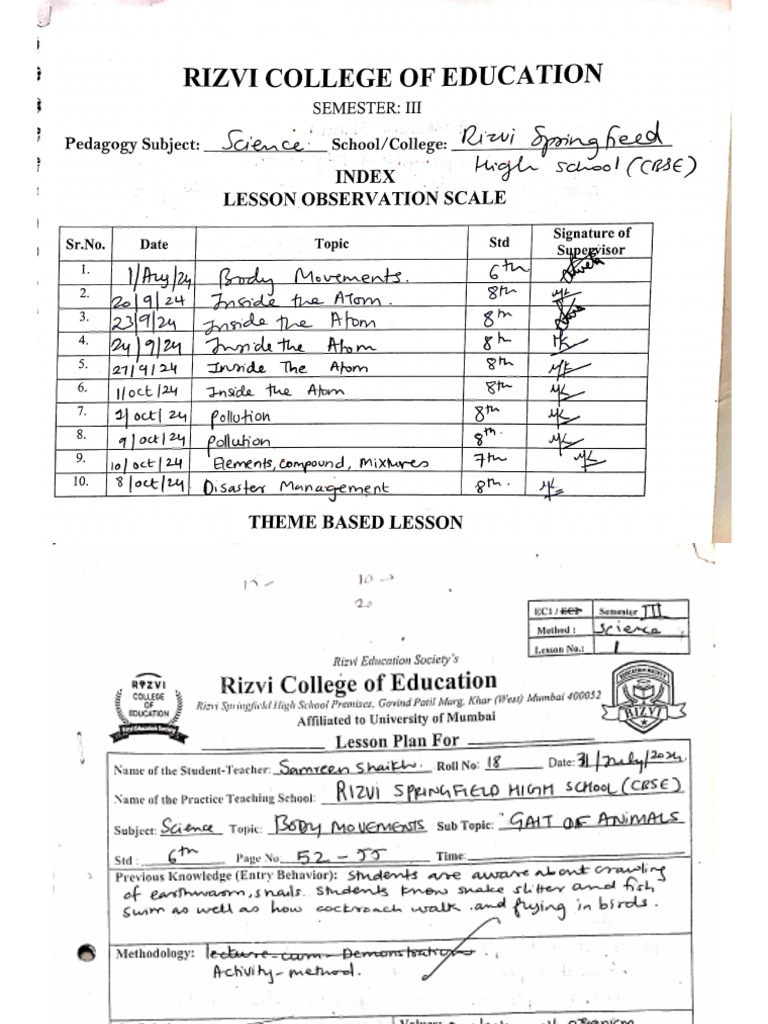 RIZVI COLLEGE OF EDUCATION
SEMESTER: III
Pedagogy Subject: Science School/College: Rizvi Springfeed
High school (CBSE)
INDEX
LESSON OBSERVATION SCALE
Sr.No. Date Topic Std Signature of Supervisor
1. 1/Aug/24 Body Movements. 6th
2. 20/9/24 Inside the ATom. 8th
3. 23/9/24 Inside the Atom 8th
4. 24/9/24 Inside the Atom 8th
5. 27/9/24 Inside The Atom 8th
6. 1/oct/24 Inside the Atom 8th
7. /oct/24 Pollution 8th
8. 9/oct/24 Pollution 8th.
9. 10/oct/24 Elements, compound, Mixtures 7th
10. 8/oct/24 Disaster Management 8th.
THEME BASED LESSON
10
20
EC1/ Semester III
Method: Science
Lesson No.: 1
Rizvi Education Society's
RIZVI COLLEGE OF EDUCATION
Rizvi College of Education
Rizvi Springfield High School Premises, Govind Patil Marg, Khar (West) Mumbai 400052
RIZVI
Affiliated to University of Mumbai
Lesson Plan For
Name of the Student-Teacher: Samreen Shaikh. Roll No: 18 Date: 31/July/2024
Name of the Practice Teaching School: RIZVI SPRINGFIELD HIGH SCHOOL (CBSE)
Subject: Science Topic: BODY MOVEMENTS Sub Topic: "GAIT OF ANIMALS
Std : 6th Page No. 52-55 Time:
Previous Knowledge (Entry Behavior): Students are aware about crawling
of earthwarm, snails. Students know snake slitter and fish
swim as well as how cockroach walk and flying in birds.
Methodology: lecture-cum-Demonstration.
Activity-method.